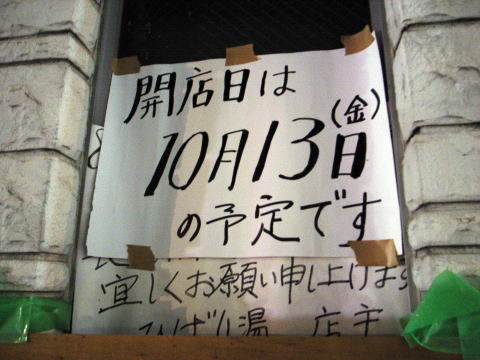 開店日は
10月13日(金)
の予定です
宜しくお願い申し上げます
ひばり湯 店主